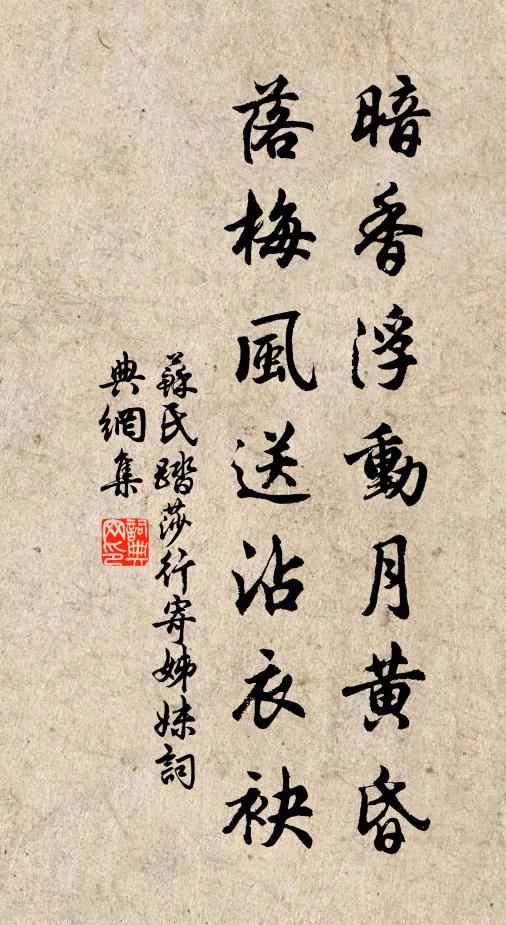 暗香浮動月黃昏
落梅風送沾衣袂
蘇氏踏莎行寄姊妹詞
典網集
詞典网印